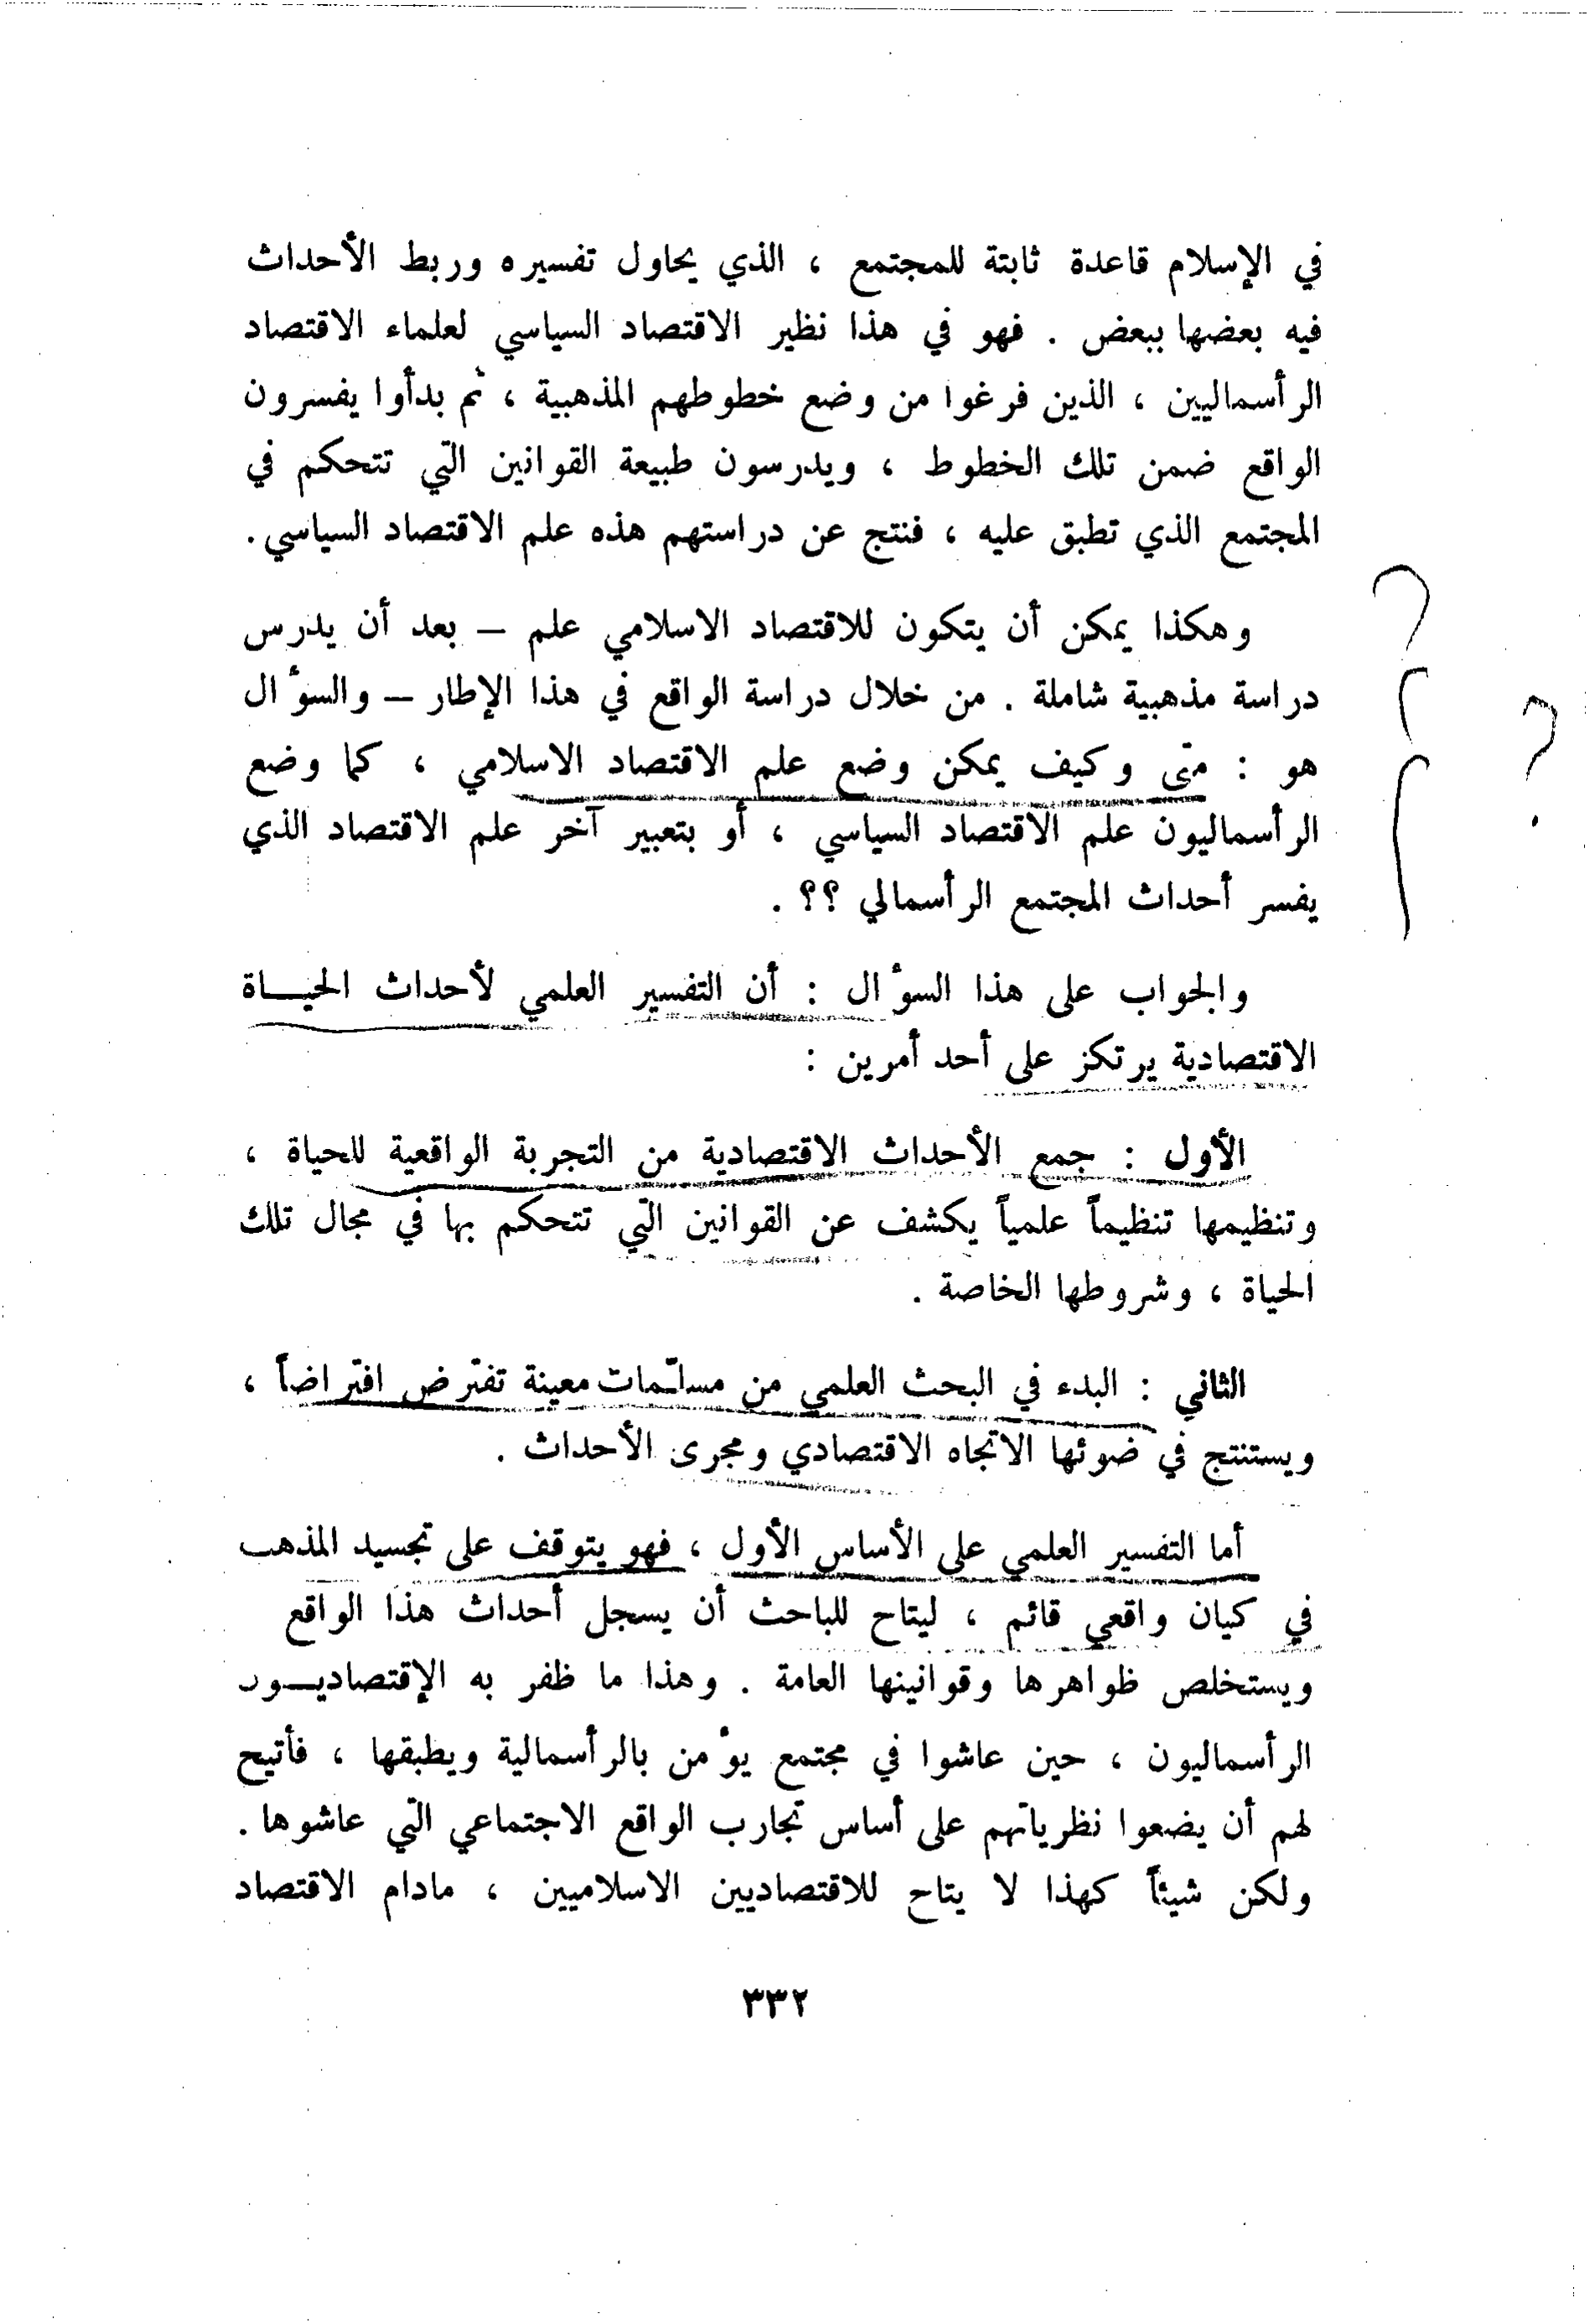 في الإسلام قاعدة ثابتة للمجتمع ، الذي يحاول تفسيره وربط الأحداث
فيه بعضها ببعض . فهو في هذا نظير الاقتصاد السياسي لعلماء الاقتصاد
الرأسماليين ، الذين فرغوا من وضع خطوطهم المذهبية ، ثم بدأوا يفسرون
الواقع ضمن تلك الخطوط ، ويدرسون طبيعة القوانين التي تتحكم في
المجتمع الذي تطبق عليه ، فنتج عن دراستهم هذه علم الاقتصاد السياسي.
وهكذا يمكن أن يتكون للاقتصاد الاسلامي علم – بعد أن يدرس
دراسة مذهبية شاملة . من خلال دراسة الواقع في هذا الإطار – والسؤال
هو : متى وكيف يمكن وضع علم الاقتصاد الاسلامي ، كما وضع
الرأسماليون علم الاقتصاد السياسي ، أو بتعبير آخر علم الاقتصاد الذي
يفسر أحداث المجتمع الرأسمالي ؟؟ .
؟
والجواب على هذا السؤال : أن التفسير العلمي لأحداث الحيــاة
الاقتصادية يرتكز على أحد أمرين :
الأول : جمع الأحداث الاقتصادية من التجربة الواقعية للحياة ،
وتنظيمها تنظيماً علمياً يكشف عن القوانين التي تتحكم بها في مجال تلك
الحياة ، وشروطها الخاصة .
الثاني : البدء في البحث العلمي من مسلّمات معينة تفترض افتراضاً ،
ويستنتج في ضوئها الاتجاه الاقتصادي ومجرى الأحداث .
أما التفسير العلمي على الأساس الأول ، فهو يتوقف على تجسيد المذهب
في كيان واقعي قائم ، ليتاح للباحث أن يسجل أحداث هذا الواقع
ويستخلص ظواهرها وقوانينها العامة . وهذا ما ظفر به الإقتصاديــون
الرأسماليون ، حين عاشوا في مجتمع يؤمن بالرأسمالية ويطبقها ، فأتيح
لهم أن يضعوا نظرياتهم على أساس تجارب الواقع الاجتماعي التي عاشوها .
ولكن شيئاً كهذا لا يتاح للاقتصاديين الاسلاميين ، مادام الاقتصاد
٣٣٢